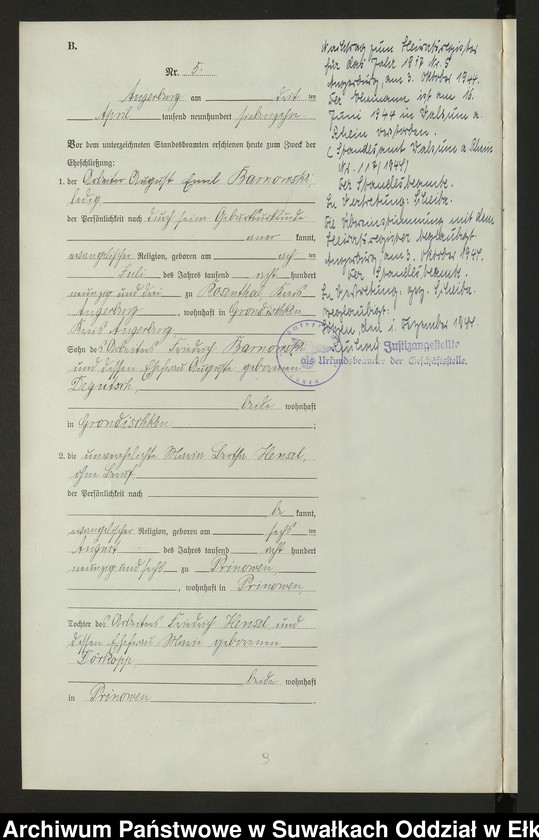 B.
Nr. 5.
Angerburg am drit ten
April tausend neunhundert siebenzehn
Vor dem unterzeichneten Standesbeamten erschienen heute zum Zweck der
Eheschließung:
1. der Arbeiter August Emil Barnowski,
ledig
der Persönlichkeit nach durch seine Geburtsurkunde
aner kannt,
evangelischer Religion, geboren am ach ten
Juli des Jahres tausend acht hundert
neunzig und drei zu Rosenthal, Kreis
Angerburg, wohnhaft in Grondischken
Kreis Angerburg,
Sohn des Arbeiters Friedrich Barnowski
und dessen Ehefrau Auguste geborenen
Degutsch,
beide wohnhaft
in Grondischken ;
2. die unverehelichte Maria Bertha Hensel,
ohne Beruf
der Persönlichkeit nach
be kannt,
evangelischer Religion, geboren am sechs ten
August des Jahres tausend acht hundert
neunzig und sechs zu Prinowen,
, wohnhaft in Prinowen,
Tochter des Arbeiters Friedrich Hensel und
dessen Ehefrau Marie geborenen
beide wohnhaft
in Prinowen .
Nachtrag zum Heiratsregister
für das Jahr 1917 Nr. 5
Angerburg, am 3. Oktober 1944.
Der Ehemann ist am 16.
Juni 1944 in Walsum a.
Rhein verstorben.
(Standesamt Walsum a. Rhein
Nr. 117/1944)
Der Standesbeamte.
In Vertretung: Scheiba.
Die Übereinstimmung mit dem
Heiratsregister beglaubigt
Angerburg, am 3. Oktober 1944.
Der Standesbeamte.
In Vertretung, gez. Scheiba.
Beglaubigt:
den 1. Dezember 1944.
Justizangestellte
als Urkundsbeamter der Geschäftsstelle.
9
Archiwum Państwowe w Suwałkach Oddział w Ełk